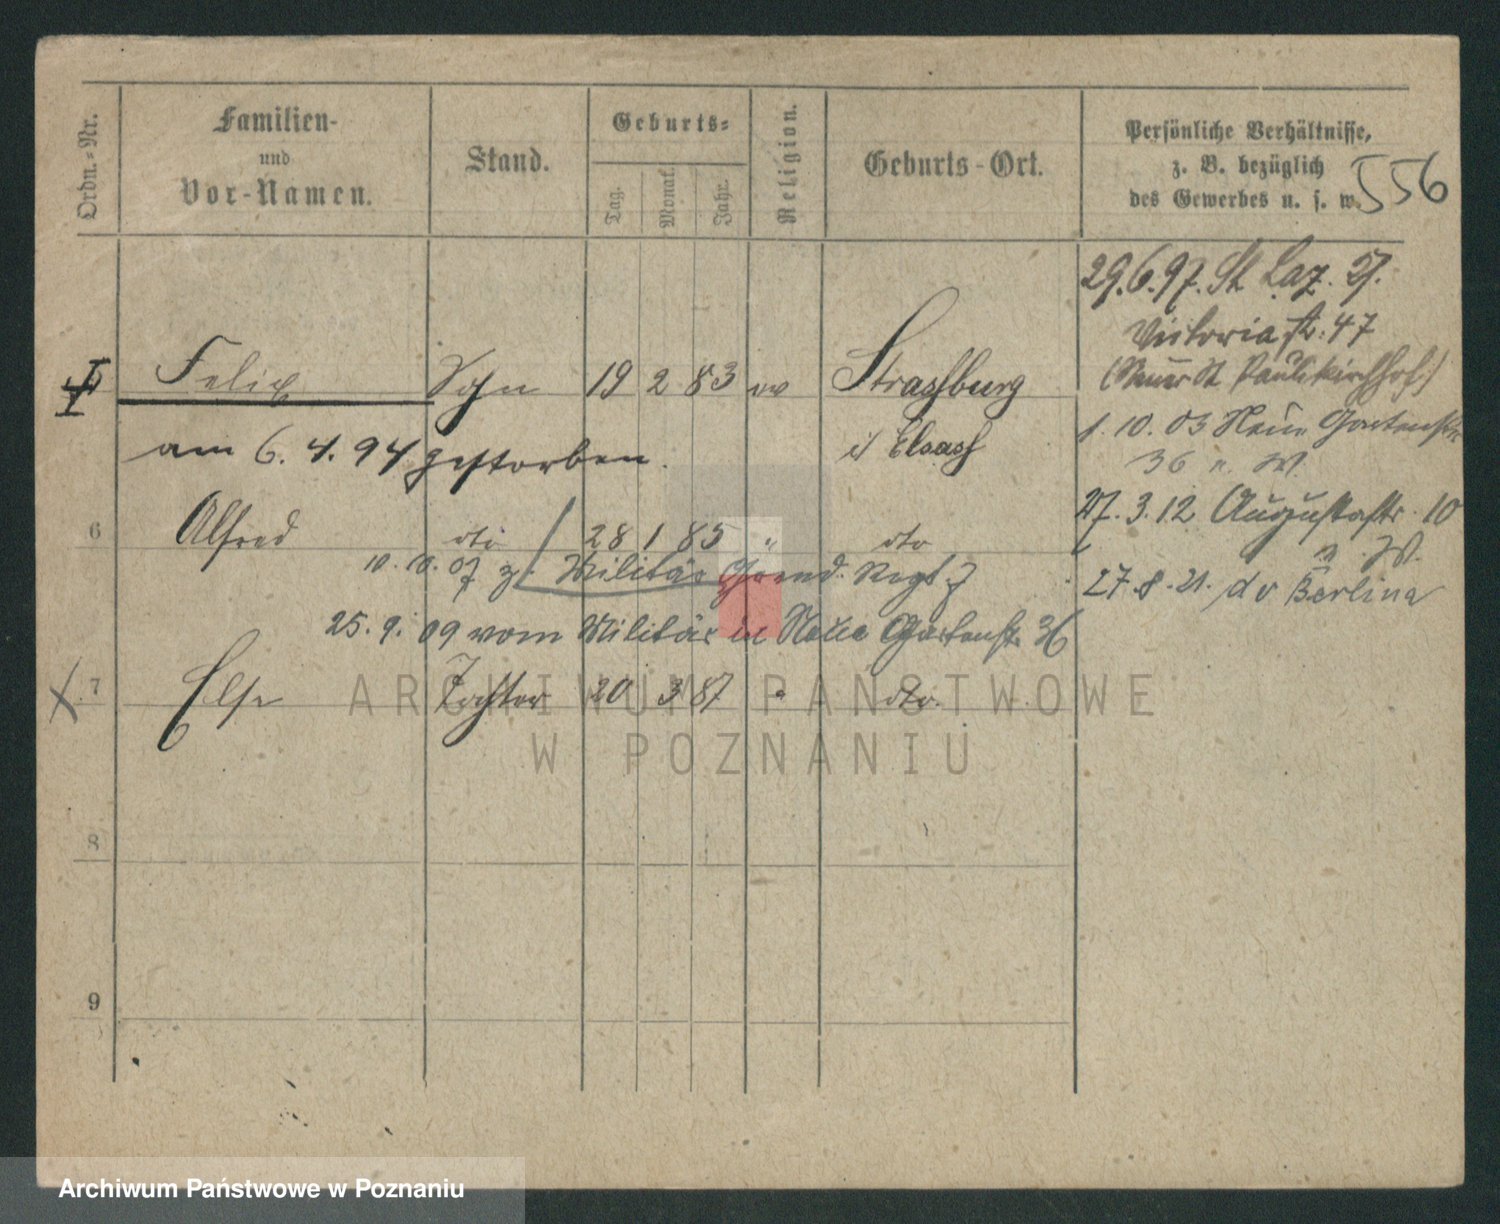 Ordn.-Nr.
Familien-
und
Vor-Namen.
Stand.
Geburts-
Tag.
Monat.
Jahr.
Religion.
Geburts-Ort.
Persönliche Verhältnisse,
z. B. bezüglich
des Gewerbes u. s. w.
556
29.6.97. St Laz. 27.
Victoriastr. 47
(Neuer St Paulikirchhof)
1. 10. 03 Neue Gartenstr
36 n. W.
27. 3. 12 Augustastr. 10
n. W.
27. 8. 21. Berlin
Felix Sohn 19 2 83 ev Strassburg
am 6. 4. 94 gestorben. i/ Elsass
6 Alfred dto 28 1 85 " dto
10. 10. 07 z. Militär Regt. 7
25. 9. 09 vom Militär in Neue Gartenstr 36
7 Else Tochter 20 3 87 " dto.
8
9
ARCHIWUM PAŃSTWOWE
W POZNANIU
Archiwum Państwowe w Poznaniu